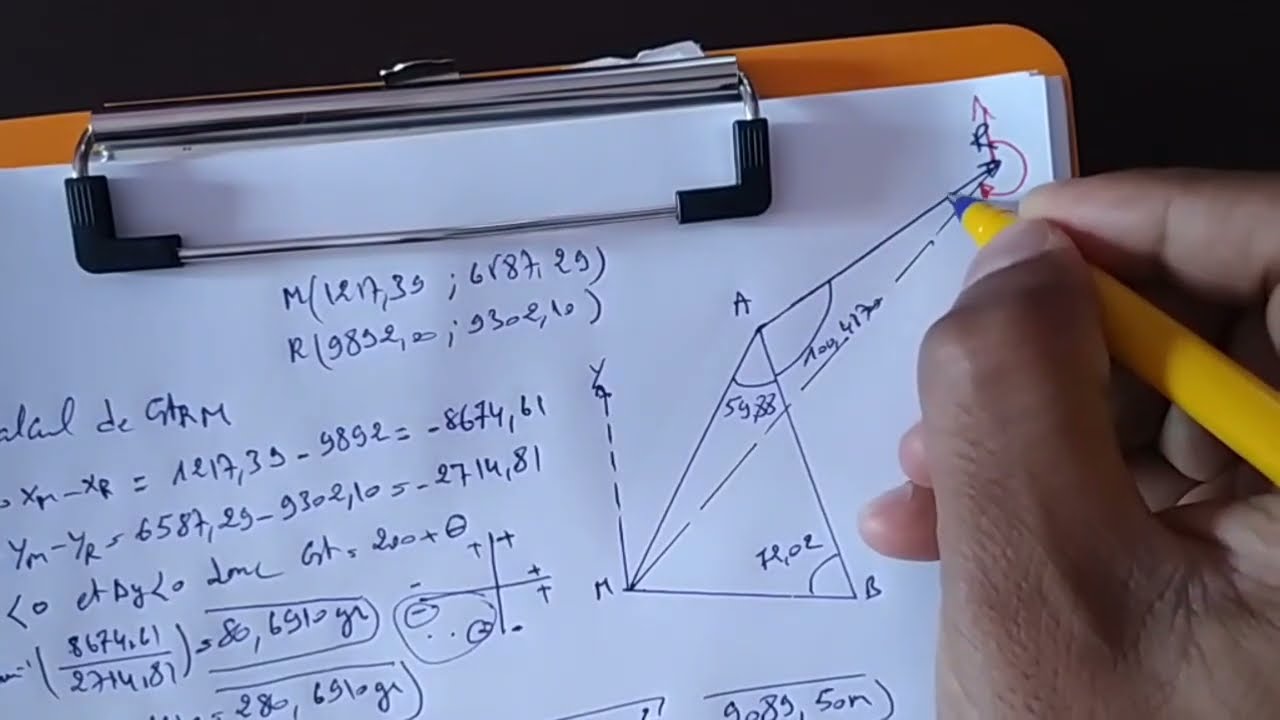 M(1217,39 ; 6587,29)
R(9892,00 ; 9302,10)
alcul de GtRM
XM-XR = 1217,39 - 9892 = -8674,61
YM-YR = 6587,29 - 9302,10 = -2714,81
<0 et Δy<0 donc Gt = 200 + θ
(8674,61 / 2714,81) = 80,6910gr
= 280,6910gr
+ +
- +
+
- - -
R
A
100,4170
59,88
Y
72,02
M
B
9089,50m